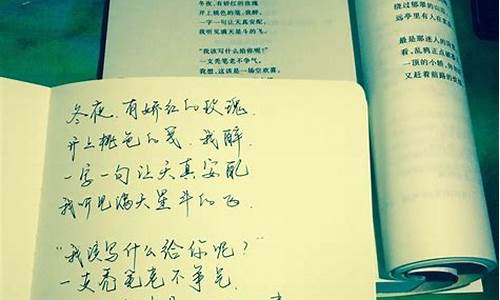 冬夜,有娇红的玫瑰
开上桃色的笺,我醉,
一字一句让天真安配,
我听见满天星斗的飞。
“我该写什么给你呢?”
一支秃笔老不争气。
我想,这该是一场空欢喜,
绕过郁黎的山
远亭里有人在
最是那迷人的
看,乱鸦正点
一顶的小轿,
又赶着前路的
冬夜,有娇红的玫瑰,
开上桃色的笺,我醉,
一字一句让天真安配
我听见满天星斗的飞,
“我该写什么给你呢?”
一支秃笔老不争气,